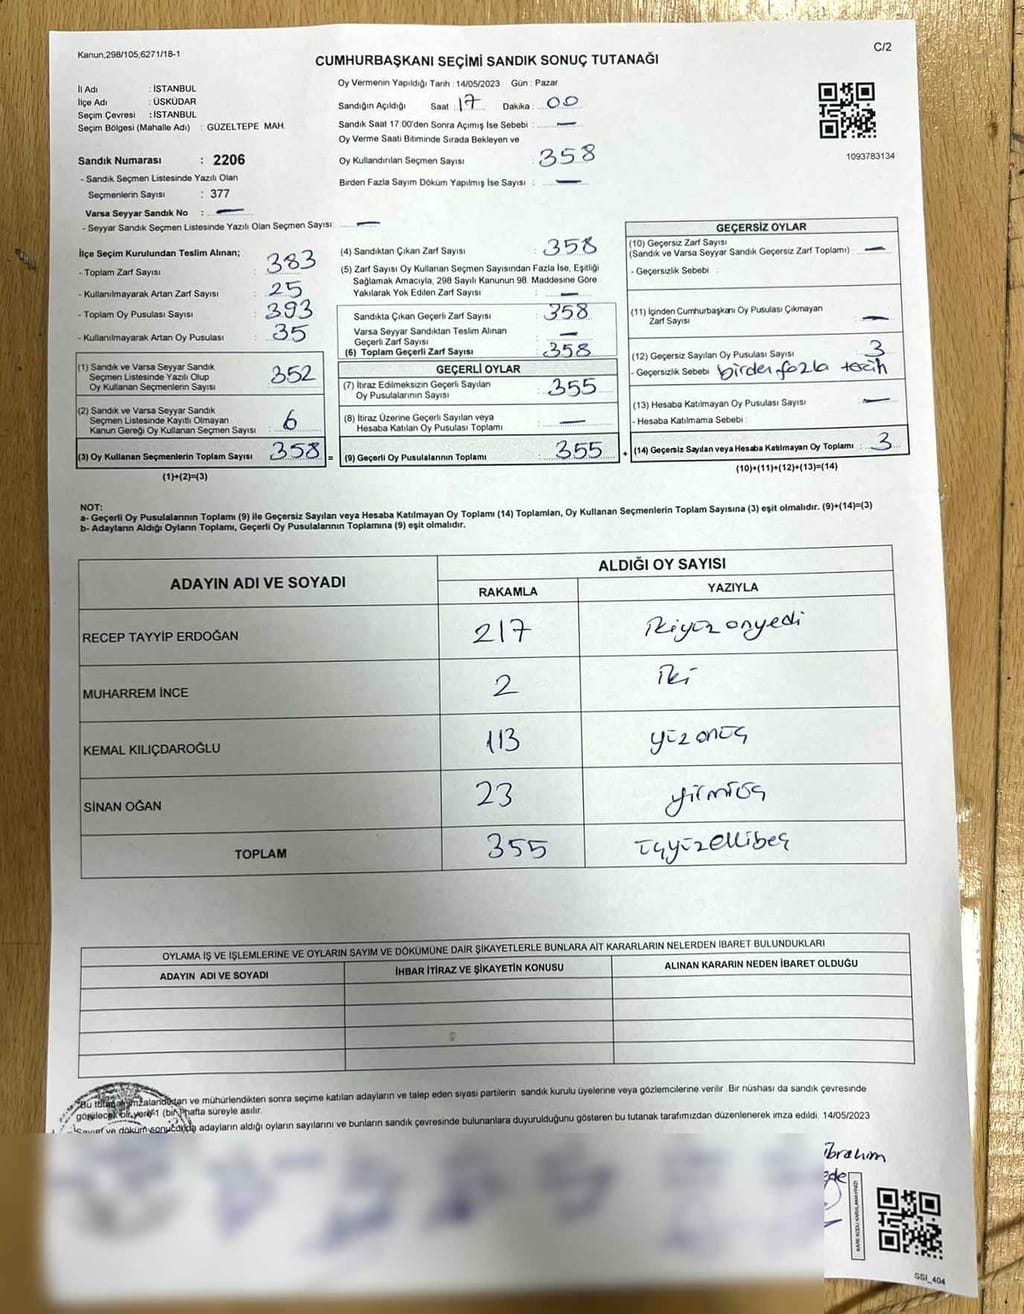 Kanun,298/105,6271/18-1
C/2
CUMHURBAŞKANI SEÇİMİ SANDIK SONUÇ TUTANAĞI
İl Adı : İSTANBUL
İlçe Adı : ÜSKÜDAR
Seçim Çevresi : İSTANBUL
Seçim Bölgesi (Mahalle Adı) : GÜZELTEPE MAH.
Sandık Numarası : 2206
- Sandık Seçmen Listesinde Yazılı Olan
Seçmenlerin Sayısı : 377
Varsa Seyyar Sandık No : —
- Seyyar Sandık Seçmen Listesinde Yazılı Olan Seçmen Sayısı: —
Oy Vermenin Yapıldığı Tarih :14/05/2023 Gün : Pazar
Sandığın Açıldığı Saat : 17 Dakika : 00
Sandık Saat 17:00'den Sonra Açımış İse Sebebi : —
Oy Verme Saati Bitiminde Sırada Bekleyen ve
Oy Kullandırılan Seçmen Sayısı : 358
Birden Fazla Sayım Döküm Yapılmış İse Sayısı : —
1093783134
İlçe Seçim Kurulundan Teslim Alınan;
- Toplam Zarf Sayısı : 383
- Kullanılmayarak Artan Zarf Sayısı : 25
- Toplam Oy Pusulası Sayısı : 393
- Kullanılmayarak Artan Oy Pusulası : 35
(1) Sandık ve Varsa Seyyar Sandık
Seçmen Listesinde Yazılı Olup
Oy Kullanan Seçmenlerin Sayısı : 352
(2) Sandık ve Varsa Seyyar Sandık
Seçmen Listesinde Kayıtlı Olmayan
Kanun Gereği Oy Kullanan Seçmen Sayısı : 6
(3) Oy Kullanan Seçmenlerin Toplam Sayısı : 358 =
(1)+(2)=(3)
(4) Sandıktan Çıkan Zarf Sayısı : 358
(5) Zarf Sayısı Oy Kullanan Seçmen Sayısından Fazla İse, Eşitliği
Sağlamak Amacıyla, 298 Sayılı Kanunun 98. Maddesine Göre
Yakılarak Yok Edilen Zarf Sayısı : —
Sandıkta Çıkan Geçerli Zarf Sayısı : 358
Varsa Seyyar Sandıktan Teslim Alınan
Geçerli Zarf Sayısı : —
(6) Toplam Geçerli Zarf Sayısı : 358
GEÇERLİ OYLAR
(7) İtiraz Edilmeksizin Geçerli Sayılan
Oy Pusulalarının Sayısı : 355
(8) İtiraz Üzerine Geçerli Sayılan veya
Hesaba Katılan Oy Pusulası Toplamı : —
(9) Geçerli Oy Pusulalarının Toplamı : 355 +
GEÇERSİZ OYLAR
(10) Geçersiz Zarf Sayısı
(Sandık ve Varsa Seyyar Sandık Geçersiz Zarf Toplamı) : —
- Geçersizlik Sebebi :
(11) İçinden Cumhurbaşkanı Oy Pusulası Çıkmayan
Zarf Sayısı : —
(12) Geçersiz Sayılan Oy Pusulası Sayısı : 3
- Geçersizlik Sebebi : birden fazla tercih
(13) Hesaba Katılmayan Oy Pusulası Sayısı : —
- Hesaba Katılmama Sebebi :
(14) Geçersiz Sayılan veya Hesaba Katılmayan Oy Toplamı : 3
(10)+(11)+(12)+(13)=(14)
NOT:
a- Geçerli Oy Pusulalarının Toplamı (9) ile Geçersiz Sayılan veya Hesaba Katılmayan Oy Toplamı (14) Toplamları, Oy Kullanan Seçmenlerin Toplam Sayısına (3) eşit olmalıdır. (9)+(14)=(3)
b- Adayların Aldığı Oyların Toplamı, Geçerli Oy Pusulalarının Toplamına (9) eşit olmalıdır.
ADAYIN ADI VE SOYADI ALDIĞI OY SAYISI
RAKAMLA YAZIYLA
RECEP TAYYİP ERDOĞAN 217 ikiyüz onyedi
MUHARREM İNCE 2 iki
KEMAL KILIÇDAROĞLU 113 yüz onüç
SİNAN OĞAN 23 yirmiüç
TOPLAM 355 üçyüzellibeş
OYLAMA İŞ VE İŞLEMLERİNE VE OYLARIN SAYIM VE DÖKÜMÜNE DAİR ŞİKAYETLERLE BUNLARA AİT KARARLARIN NELERDEN İBARET BULUNDUKLARI
ADAYIN ADI VE SOYADI İHBAR İTİRAZ VE ŞİKAYETİN KONUSU ALINAN KARARIN NEDEN İBARET OLDUĞU
Bu tutanak imzalandıktan ve mühürlendikten sonra seçime katılan adayların ve talep eden siyasi partilerin sandık kurulu üyelerine veya gözlemcilerine verilir .Bir nüshası da sandık çevresinde
görülecek bir yere 1 (bir) hafta süreyle asılır.
Sayım ve döküm sonucunda adayların aldığı oyların sayılarını ve bunların sandık çevresinde bulunanlara duyurulduğunu gösteren bu tutanak tarafımızdan düzenlenerek imza edildi. 14/05/2023
İbrahim
SSI_404